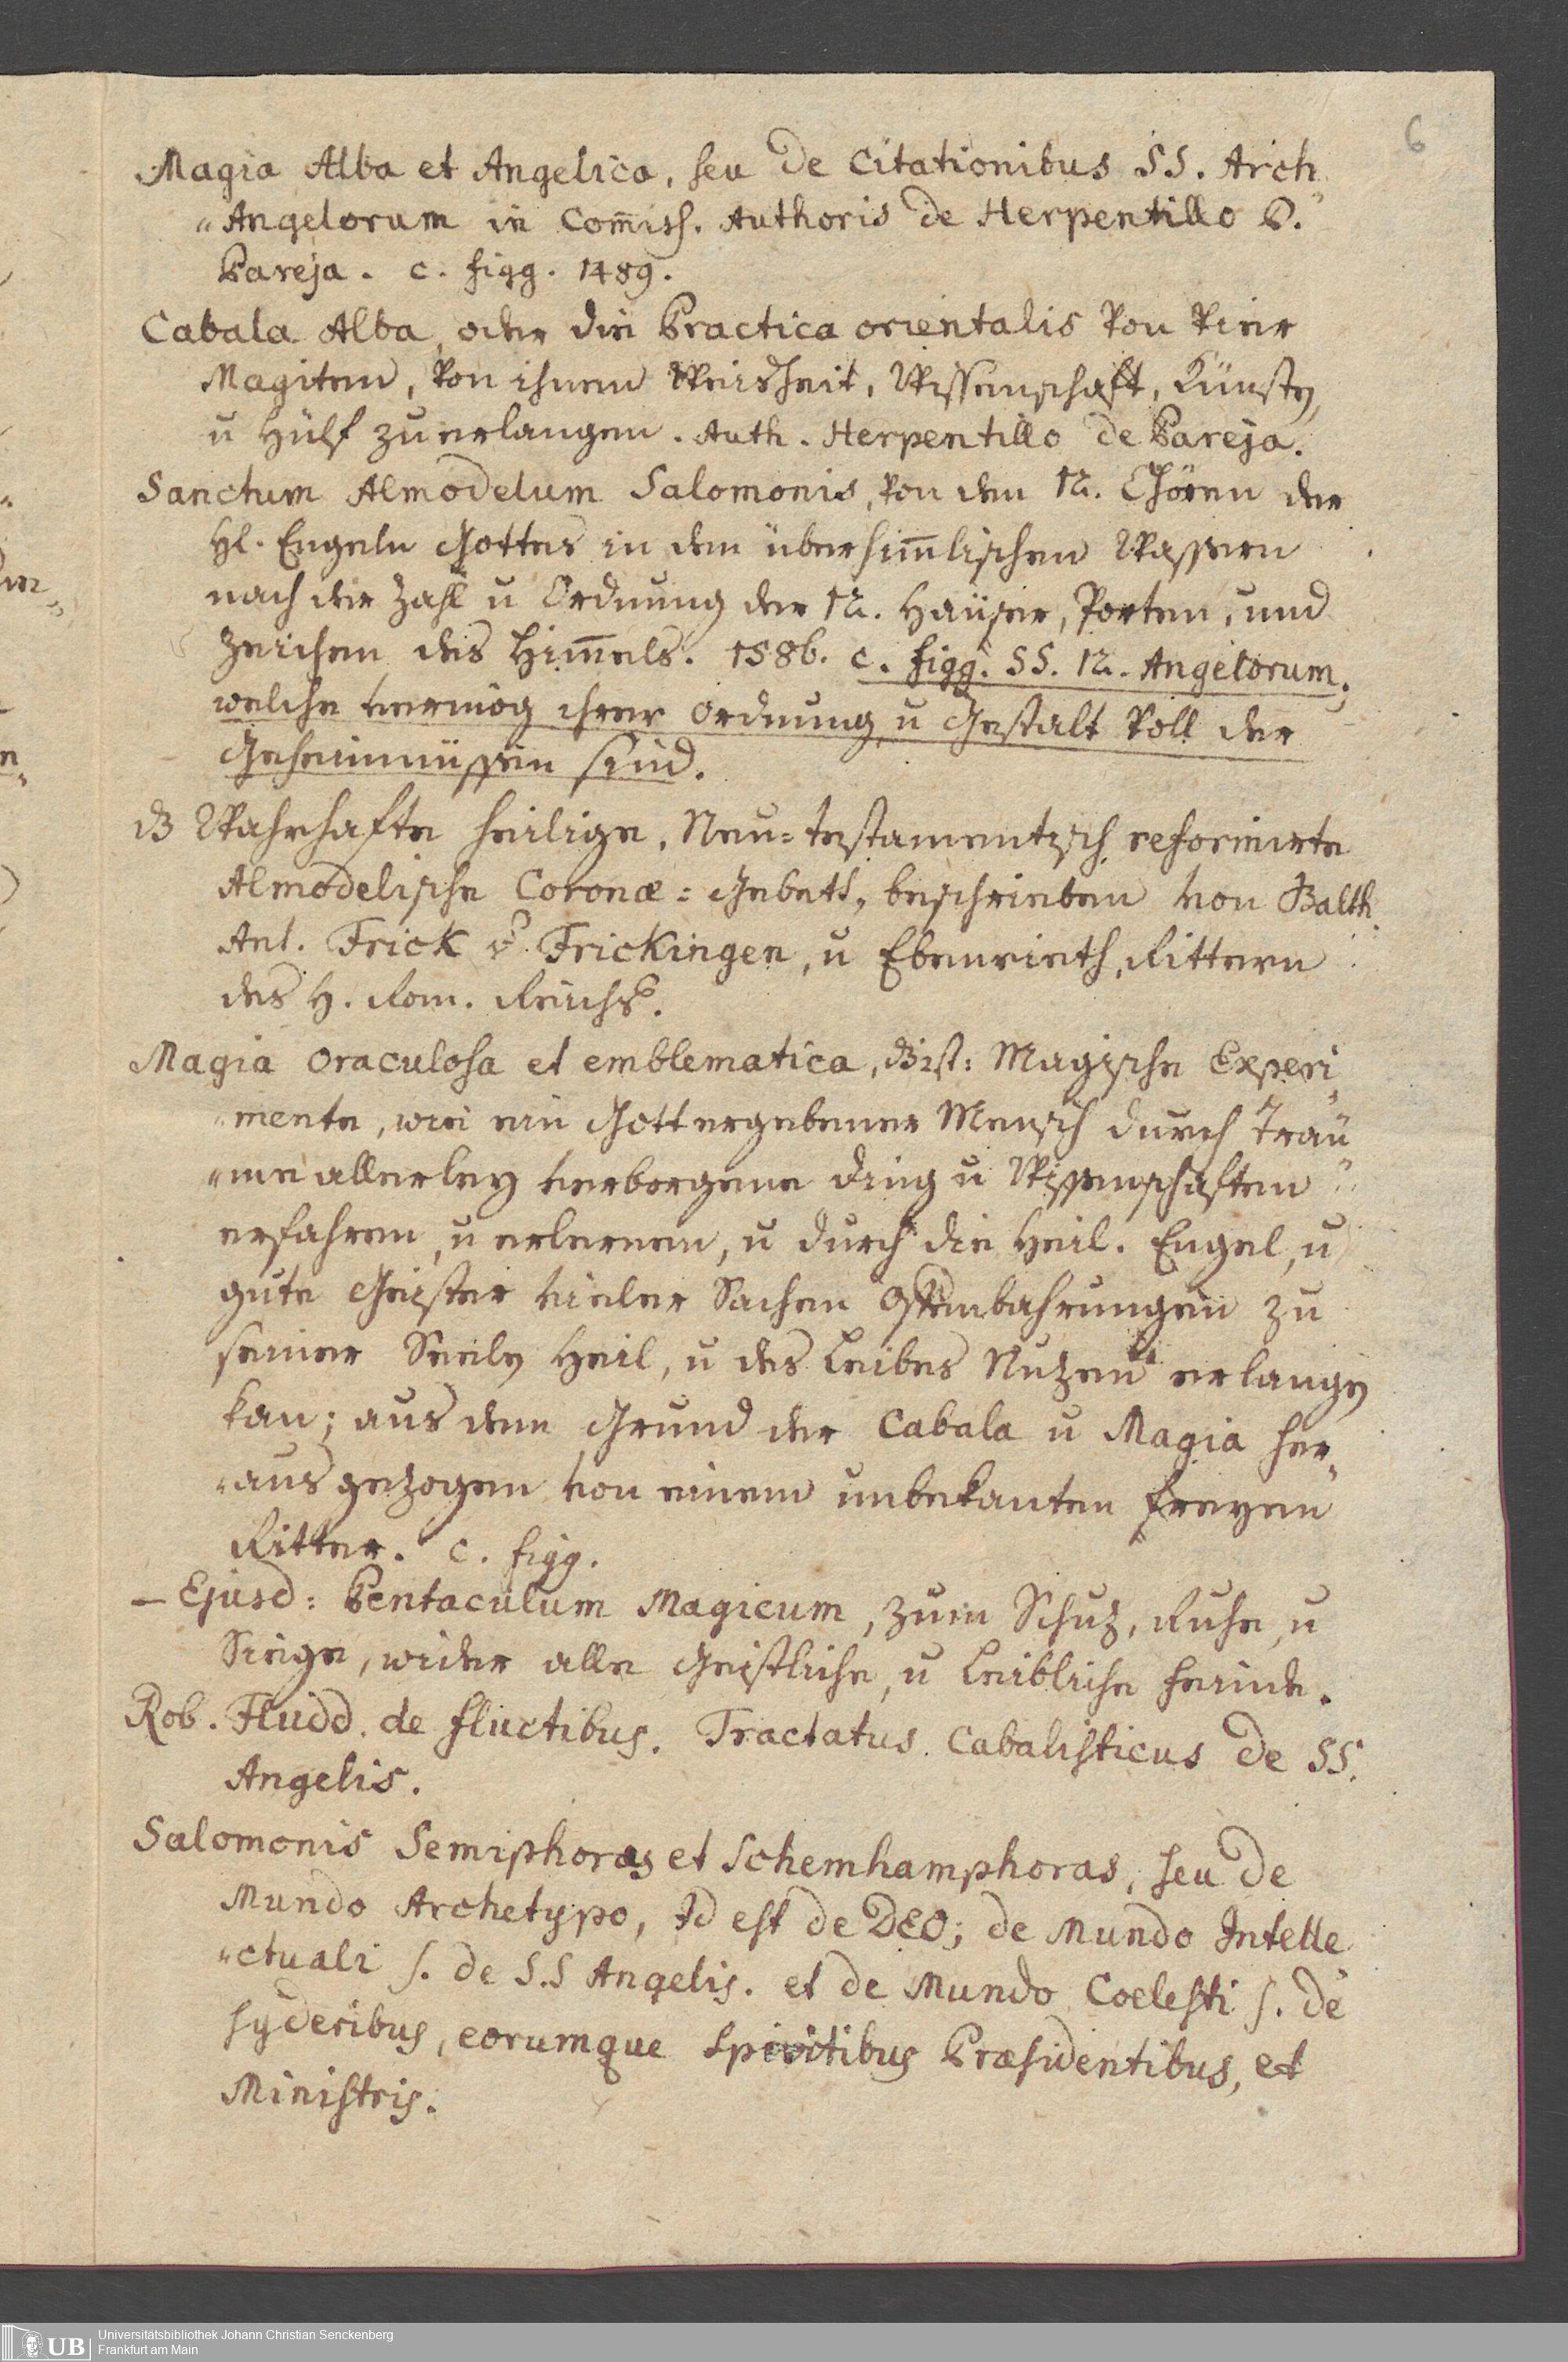 6
Magia Alba et Angelica, seu de Citationibus SS. Arch
„Angelorum in Com̅iss. Authoris de Herpentillo P.
Pareja. c. figg. 1489.
Cabala Alba, oder die Practica orientalis von vier
Magiten, von ihnen Weisheit, Wissenschaft, Künsten,
u Hülf zu erlangen. Auth. Herpentillo de Pareja.
Sanctum Almodelum Salomonis, von den 12. Chören der
Hl. Engeln Gottes in den überhim̅lischen Wassern
nach der Zahl u Ordnung der 12. Haüser, Porten, und
Zeichen des Him̅els. 1586. c. figg. SS. 12. Angelorum,
welche vermög ihrer Ordnung u Gestalt voll der
Geheimnüssen sind.
Wahrhafte heilige, Neu=testamentisch reformirte
Almodelische Coronæ=Gebett, beschrieben von Balth.
Ant. Frick v. Frickingen, u Ebenrieth, Rittern
des H. Rom. Reichs.
Magia oraculosa et emblematica, Dist: Magische Experi
„mente, wie ein Gott ergebener Mensch durch Träu
„me allerley verborgene ding u Wissenschaften
erfahren, u erlernen, u durch die Heil. Engel, u
gute Geister vieler Sachen Offenbahrungen zu
seiner Seelen Heil, u des Leibes Nutzen erlangen
kan; aus dem Grund der Cabala u Magia her
„aus gezogen von einem unbekanten freyen
Ritter. c. figg.
– Ejusd: Pentaculum Magicum, zum Schuz, Ruhe, u
Siege, wider alle Geistliche, u Leibliche Feinde.
Rob. Fludd. de fluctibus. Tractatus Cabalisticus de SS.
Angelis.
Salomonis Semiphoras et Schemhamphoras, seu de
Mundo Archetypo, Id est de DEO; de Mundo Intelle
„ctuali s. de S.S Angelis. et de Mundo Coelesti s. de
syderibus, eorumque Spiritibus Præsidentibus, et
Ministris.
UB Universitätsbibliothek Johann Christian Senckenberg
Frankfurt am Main